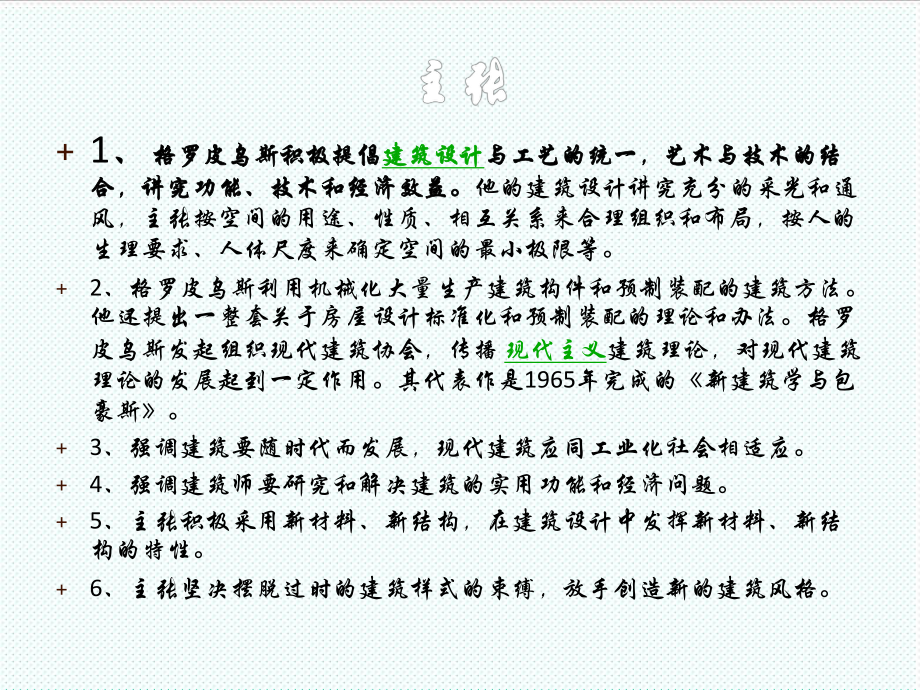 主张
+ 1、格罗皮乌斯积极提倡建筑设计与工艺的统一，艺术与技术的结
合，讲究功能、技术和经济效益。他的建筑设计讲究充分的采光和通
风，主张按空间的用途、性质、相互关系来合理组织和布局，按人的
生理要求、人体尺度来确定空间的最小极限等。
+ 2、格罗皮乌斯利用机械化大量生产建筑构件和预制装配的建筑方法。
他还提出一整套关于房屋设计标准化和预制装配的理论和办法。格罗
皮乌斯发起组织现代建筑协会，传播 现代主义建筑理论，对现代建筑
理论的发展起到一定作用。其代表作是1965年完成的《新建筑学与包
豪斯》。
+ 3、强调建筑要随时代而发展，现代建筑应同工业化社会相适应。
+ 4、强调建筑师要研究和解决建筑的实用功能和经济问题。
+ 5、主张积极采用新材料、新结构，在建筑设计中发挥新材料、新结
构的特性。
+ 6、主张坚决摆脱过时的建筑样式的束缚，放手创造新的建筑风格。